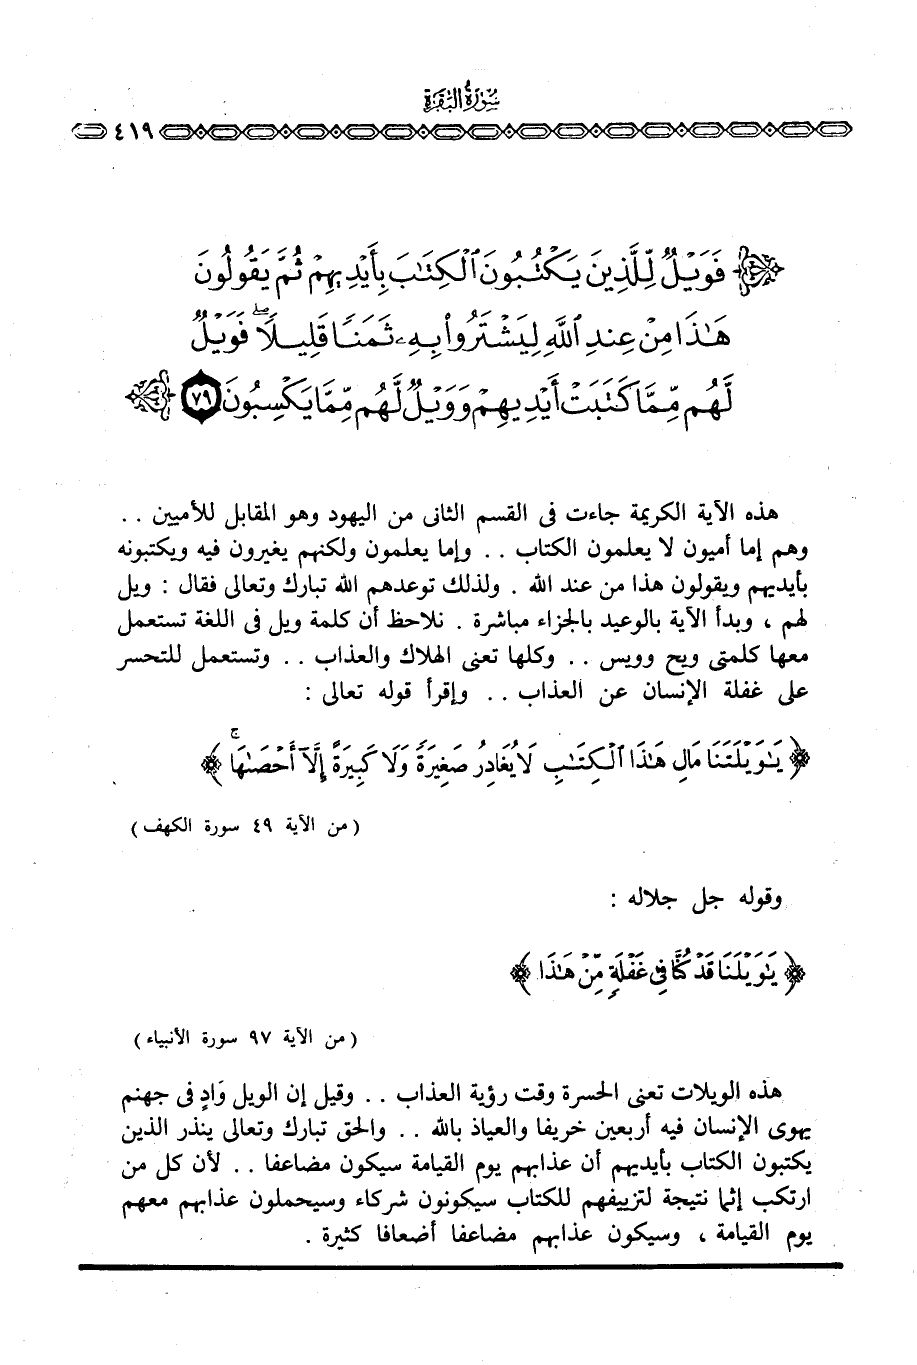 سورة البقرة
٤١٩
فَوَيْلٌ لِّلَّذِينَ يَكْتُبُونَ ٱلْكِتَـٰبَ بِأَيْدِيهِمْ ثُمَّ يَقُولُونَ
هَـٰذَا مِنْ عِندِ ٱللَّهِ لِيَشْتَرُوا۟ بِهِۦ ثَمَنًا قَلِيلًا ۖ فَوَيْلٌ
لَّهُم مِّمَّا كَتَبَتْ أَيْدِيهِمْ وَوَيْلٌ لَّهُم مِّمَّا يَكْسِبُونَ ﴿٧٩﴾
هذه الآية الكريمة جاءت فى القسم الثانى من اليهود وهو المقابل للأميين . .
وهم إما أميون لا يعلمون الكتاب . . وإما يعلمون ولكنهم يغيرون فيه ويكتبونه
بأيديهم ويقولون هذا من عند الله . ولذلك توعدهم الله تبارك وتعالى فقال : ويل
لهم ، وبدأ الآية بالوعيد بالجزاء مباشرة . نلاحظ أن كلمة ويل فى اللغة تستعمل
معها كلمتى ويح وويس . . وكلها تعنى الهلاك والعذاب . . وتستعمل للتحسر
على غفلة الإنسان عن العذاب . . وإقرأ قوله تعالى :
﴿ يَـٰوَيْلَتَنَا مَالِ هَـٰذَا ٱلْكِتَـٰبِ لَا يُغَادِرُ صَغِيرَةً وَلَا كَبِيرَةً إِلَّآ أَحْصَـٰهَا ۚ ﴾
( من الآية ٤٩ سورة الكهف )
وقوله جل جلاله :
﴿ يَـٰوَيْلَنَا قَدْ كُنَّا فِى غَفْلَةٍ مِّنْ هَـٰذَا ﴾
( من الآية ٩٧ سورة الأنبياء )
هذه الويلات تعنى الحسرة وقت رؤية العذاب . . وقيل إن الويل وَادٍ فى جهنم
يهوى الإنسان فيه أربعين خريفا والعياذ بالله . . والحق تبارك وتعالى ينذر الذين
يكتبون الكتاب بأيديهم أن عذابهم يوم القيامة سيكون مضاعفا . . لأن كل من
ارتكب إثما نتيجة لتزييفهم للكتاب سيكونون شركاء وسيحملون عذابهم معهم
يوم القيامة ، وسيكون عذابهم مضاعفا أضعافا كثيرة .